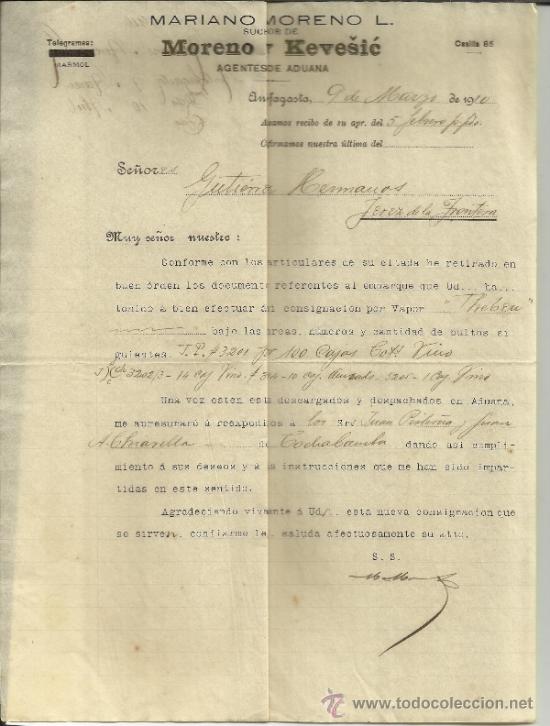 MARIANO MORENO L.
SUCSOR DE
Moreno y Kevešić
AGENTES DE ADUANA
Telegramas:
MARMOL
Casilla 85
Antofagasta, 9 de Marzo de 1910
Acamos recibo de su apr. del 5 febrero ppdo.
Cfirmamos nuestra última del
Señores
Gutiérrez Hermanos
Jerez de la Frontera
Muy señor nuestro:
Conforme con los articulares de su citada he retirado en
buen órden los documento referentos al embarque que Ud... ha..
tenido á bien efectuar á mi consignación por Vapor "Theben"
bajo las arcas, números y cantidad de bultos si
guientes. J.P. # 3201 100 Cajas Vino
3202/3 - 14 Caj Vino. # 3/4 - 10 caj. 3205 - 1 Caj Vino
Una vez estén esto descargados y despachados en Aduana,
me apresuraré á reexpedirlos á los Srs Juan y Juan
de Cochabamba dando así cumpli-
miento á sus deseos y á sus instrucciones que me han sido impar-
tidas en este sentido.
Agradeciendo vivamente á Ud/. esta nueva consignacion que
se sirve confiarme le saluda afectuosamente su atto.
S. S.
todocoleccion
www.todocoleccion.net